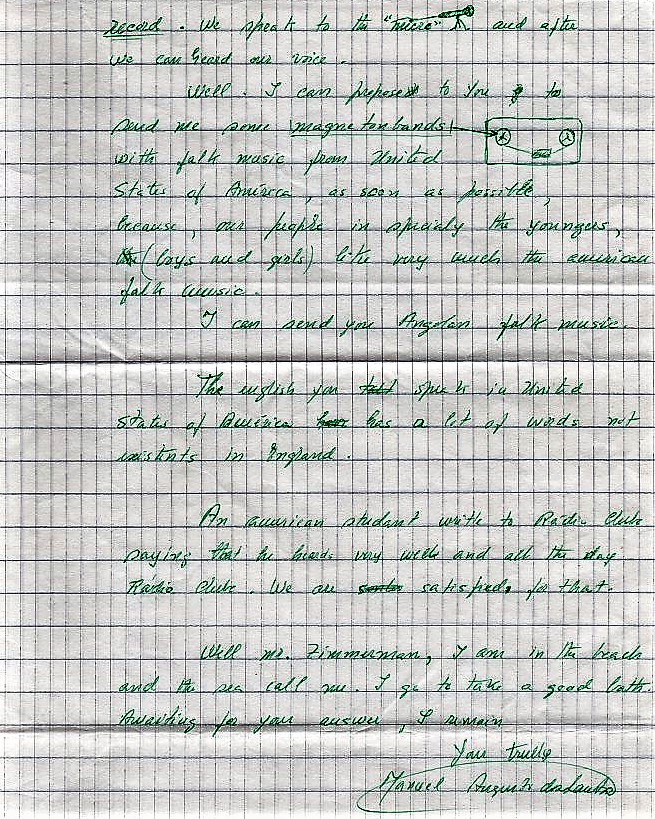 record. We speak to the "micro" and after
we can heard our voice.
Well. I can propose to you to
send me some magnetonbands
with folk music from United
States of América, as soon as possible,
because, our people in specialy the youngers,
(boys and girls) like very much the american
folk music.
I can send you Angolan folk music.
The english you speak in United
States of América has a lot of words not
existents in England.
An american student writte to Radio Clube
saying that he heards very well and all the day
Radio Clube. We are satisfied, for that.
Well mr. Zimmerman, I am in the beach
and the sea call me. I go to take a good bath.
Awaiting for your answer, I remain
Your trulle
Manuel Augusto